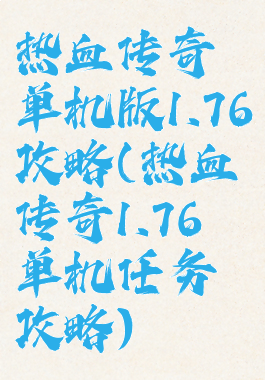 热血传奇
单机版1.76
攻略(热血
传奇1.76
单机任务
攻略)